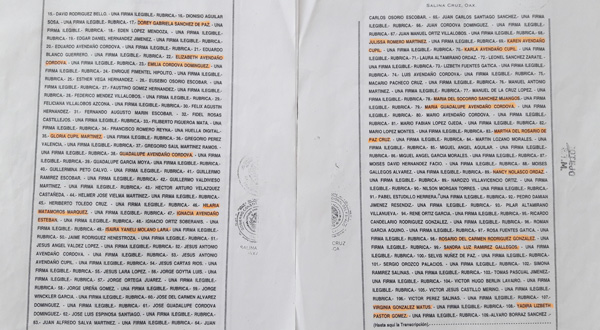 16.- DAVID RODRIGUEZ BELLO. - UNA FIRMA ILEGIBLE.- RUBRICA.- 16.- DIONISIO AGUILAR
SOSA. - UNA FIRMA ILEGIBLE.- RUBRICA.- 17.- DOREY GABRIELA SANCHEZ DE PAZ. - UNA
FIRMA ILEGIBLE.- RUBRICA.- 18.- EDEN LOPEZ MENDOZA. - UNA FIRMA ILEGIBLE.-
RUBRICA.- 19.- EDGAR DANIEL HERNANDEZ JIMENEZ. - UNA FIRMA ILEGIBLE.- RUBRICA.-
20.- EDUARDO AVENDAÑO CORDOVA. - UNA FIRMA ILEGIBLE.- RUBRICA.- 21.- EDUARDO
BLANCO GUERRERO. - UNA FIRMA ILEGIBLE.- RUBRICA.- 22.- ELIZABETH AVENDAÑO
CORDOVA. - UNA FIRMA ILEGIBLE.- RUBRICA.- 23.- EMILIA CORDOVA DOMINGUEZ. - UNA
FIRMA ILEGIBLE.- RUBRICA.- 24.- ENRIQUE PIMENTEL HIPOLITO. - UNA FIRMA ILEGIBLE.-
RUBRICA.- 25.- ESTHER VEGA HERNANDEZ. - UNA FIRMA ILEGIBLE.- RUBRICA.- 26.- EUSEBIO OSORIO ESCOBAR. - UNA
FIRMA ILEGIBLE.- RUBRICA.- 27.- FAUSTINO GOMEZ HERNANDEZ. - UNA FIRMA ILEGIBLE.-
RUBRICA.- 28.- FEDERICO MENDEZ VILLALOBOS. - UNA FIRMA ILEGIBLE.- RUBRICA.- 29.-
FELICIANA VILLALOBOS AZCONA. - UNA FIRMA ILEGIBLE.- RUBRICA.- 30.- FELIX AGUSTIN
HERNANDEZ.- 31.- FERNANDO AGUSTIN MARIN ESCOBAR. - 32.- FIDEL ROSAS
CASTILLEJOS. - UNA FIRMA ILEGIBLE.- RUBRICA.- 33.- FILIBERTO FIGUEROA MATA. - UNA
FIRMA ILEGIBLE.- RUBRICA.- 34.- FRANCISCO ROMERO REYNA.- UNA HUELLA DIGITAL.-
35.- GLORIA CUPIL MARTINEZ. - UNA FIRMA ILEGIBLE.- RUBRICA.- 36.- GREGORIO PEREZ
VALENCIA. - UNA FIRMA ILEGIBLE.- RUBRICA.- 37.- GREGORIO SAUL MARTINEZ RAMOS. -
UNA FIRMA ILEGIBLE.- RUBRICA.- 38.- GUADALUPE AVENDAÑO CORDOVA. - UNA FIRMA
ILEGIBLE.- RUBRICA.- 39.- GUADALUPE GARCIA MOYA. - UNA FIRMA ILEGIBLE.- RUBRICA.-
40.- GUILLERMINA PETO CALVO. - UNA FIRMA ILEGIBLE.- RUBRICA.- 41.- GUILLERMO
RAMIREZ ESCOBAR. - UNA FIRMA ILEGIBLE.- RUBRICA.- 42.- GUILLERMO VALDIVIESO
MARTINEZ. - UNA FIRMA ILEGIBLE.- RUBRICA.- 43.- HECTOR ARTURO VELAZQUEZ
CASTAÑEDA. - 44.- HELMER JOSE VIELMA MARTINEZ. - UNA FIRMA ILEGIBLE.- RUBRICA.-
45.- HERIBERTO TOLEDO CRUZ. - UNA FIRMA ILEGIBLE.- RUBRICA.- 46.- HILARIA
MATAMOROS MARQUEZ. - UNA FIRMA ILEGIBLE.- RUBRICA.- 47.- IGNACIA AVENDAÑO
ESTEBAN. - UNA FIRMA ILEGIBLE.- RUBRICA.- 48.- IGNACIO ORTIZ SOBERANIS. - UNA
FIRMA ILEGIBLE.- RUBRICA.- 49.- ISAIRA YANELI MOLANO LARA. - UNA FIRMA ILEGIBLE.-
RUBRICA.- 50.- JAIME RODRIGUEZ HENESTROZA. - UNA FIRMA ILEGIBLE.- RUBRICA.- 51.-
JESUS ANGEL VALDEZ LOPEZ. - UNA FIRMA ILEGIBLE.- RUBRICA.- 52.- JESUS ANTONIO
AVENDAÑO CORDOVA. - UNA FIRMA ILEGIBLE.- RUBRICA.- 53.- JESUS ANTONIO
AVENDAÑO CUPIL. - UNA FIRMA ILEGIBLE.- RUBRICA.- 54.- JESUS CARTAS RIOS. - UNA
FIRMA ILEGIBLE.- RUBRICA.- 55.- JESUS LARA LOPEZ. - UNA FIRMA ILEGIBLE.- RUBRICA.- 56.- JORGE GOYTIA LUIS. - UNA FIRMA
ILEGIBLE.- RUBRICA.- 57.- JORGE ORTEGA JUAREZ. - UNA FIRMA ILEGIBLE.- RUBRICA.-
58.- JORGE UREÑA GOMEZ. - UNA FIRMA ILEGIBLE.- RUBRICA.- 59.- JORGE
WINCKLER GARCIA. - UNA FIRMA ILEGIBLE.- RUBRICA.- 60.- JOSE DEL CARMEN ALVAREZ
DOMINGUEZ. - UNA FIRMA ILEGIBLE.- RUBRICA.- 61.- JOSE GUADALUPE CORDOVA
DOMINGUEZ. - 62.- JOSE LUIS ESPINOSA SANTIAGO. - UNA FIRMA ILEGIBLE.- RUBRICA.-
63.- JUAN ALFREDO SALVA MARTINEZ. - UNA FIRMA ILEGIBLE.- RUBRICA.- 64.- JUAN
SALINA CRUZ, OAX
CARLOS OSORIO ESCOBAR. - 65.- JUAN CARLOS SANTIAGO SANCHEZ. - UNA FIRMA
ILEGIBLE.- RUBRICA.- 66.- JUAN CORDOVA DOMINGUEZ. - UNA FIRMA ILEGIBLE.- RUBRICA.-
67.- JUAN MANUEL ORTIZ VILLALOBOS. - UNA FIRMA ILEGIBLE.- RUBRICA.- 68.-
JULISSA ROMERO MARTINEZ. - UNA FIRMA ILEGIBLE.- RUBRICA.- 69.- KAREN AVENDAÑO
CUPIL. - UNA FIRMA ILEGIBLE.- RUBRICA.- 70.- KARLA AVENDAÑO CUPIL. - UNA FIRMA
ILEGIBLE.- RUBRICA.- 71.- LAURA ALTAMIRANO ORDAZ. - 72.- LEONEL SANCHEZ ZARATE. -
UNA FIRMA ILEGIBLE.- RUBRICA.- 73.- LIZBETH FUENTES GATICA. - UNA FIRMA ILEGIBLE.- RUBRICA.-
74.- LUIS AVENDAÑO CORDOVA. - UNA FIRMA ILEGIBLE.- RUBRICA.- 75.-
MACARIO PACHECO CRUZ. - UNA FIRMA ILEGIBLE.- RUBRICA.- 76.- MANUEL ANTONIO
MARTINEZ. - UNA FIRMA ILEGIBLE.- RUBRICA.- 77.- MANUEL DE LA CRUZ LOPEZ. - UNA
FIRMA ILEGIBLE.- RUBRICA.- 78.- MARIA DEL SOCORRO SANCHEZ MIJANGOS. - UNA FIRMA
ILEGIBLE.- RUBRICA.- 79.- MARIA GUADALUPE AVENDAÑO CORDOVA. - UNA FIRMA
ILEGIBLE.- RUBRICA.- 80.- MARIO AVENDAÑO CORDOVA. - UNA FIRMA ILEGIBLE.-
RUBRICA.- 81.- MARIO FABIAN LOPEZ OJEDA. - UNA FIRMA ILEGIBLE.- RUBRICA.- 82.-
MARIO LOPEZ MONTES. - UNA FIRMA ILEGIBLE.- RUBRICA.- 83.- MARTHA DEL ROSARIO DE
PAZ CRUZ. - UNA FIRMA ILEGIBLE.- RUBRICA.- 84.- MARTIN LOZANO MORALES. - UNA
FIRMA ILEGIBLE.- RUBRICA.- 85.- MIGUEL ANGEL AGUILAR. - UNA FIRMA ILEGIBLE.-
RUBRICA.- 86.- MIGUEL ANGEL GARCIA MORALES. - UNA FIRMA ILEGIBLE.- RUBRICA.- 87.-
MOISES DAVID HERNANDEZ FACIO. - UNA FIRMA ILEGIBLE.- RUBRICA.- 88.- MOISES
GALLEGOS ALVAREZ. - UNA FIRMA ILEGIBLE.- RUBRICA.- NANCY NOLASCO OROAZ. -
UNA FIRMA ILEGIBLE.- RUBRICA.- 89.- NARCIZO VILLAVICENCIO ORTIZ. - UNA FIRMA
ILEGIBLE.- RUBRICA.- 90.- NILSON MORGAN TORRES. - UNA FIRMA ILEGIBLE.- RUBRICA.-
91.- PABEL ESTOFILO HERRERA. - UNA FIRMA ILEGIBLE.- RUBRICA.- 92.- PEDRO DAMIAN
JIMENEZ RESENDIZ. - UNA FIRMA ILEGIBLE.- RUBRICA.- 93.- PILAR ALTAMIRANO
VILLANUEVA. - 94.- RENE ORTIZ GARCIA. - UNA FIRMA ILEGIBLE.- RUBRICA.- 95.- RICARDO
CANDELARIO RODRIGUEZ GONZALEZ. - UNA FIRMA ILEGIBLE.- RUBRICA.- 96.- ROMAN
GARCIA AQUINO. - UNA FIRMA ILEGIBLE.- RUBRICA.- 97.- ROSA FUENTES GATICA. - UNA
FIRMA ILEGIBLE.- RUBRICA.- 98.- ROSARIO DEL CARMEN RODRIGUEZ GONZALEZ. - UNA
FIRMA ILEGIBLE.- RUBRICA.- 99.- SANDRA LUZ RAMIREZ GALLEGOS. - UNA FIRMA
ILEGIBLE.- RUBRICA.- 100.- SELVIS NUÑEZ DE PAZ. - UNA FIRMA ILEGIBLE.- RUBRICA.-
101.- SERGIO OROZCO PALACIOS. - UNA FIRMA ILEGIBLE.- RUBRICA.- 102.- SIMONA
RAMIREZ SALINAS. - UNA FIRMA ILEGIBLE.- RUBRICA.- 103.- TOMAS PASCUAL JIMENEZ. -
UNA FIRMA ILEGIBLE.- RUBRICA.- 104.- VICTOR HUGO BERLIN LAVARIO. - UNA FIRMA
ILEGIBLE.- RUBRICA.- 105.- VICTOR JESUS CASTILLO MERINO. - UNA FIRMA ILEGIBLE.-
RUBRICA.- 106.- VICTOR PEREZ SALINAS. - UNA FIRMA ILEGIBLE.- RUBRICA.- 107.-
VIRGINIA GONZALEZ MATUS. - UNA FIRMA ILEGIBLE.- RUBRICA.- 108.- YADIRA LIZBETH
PASTOR GOMEZ. - UNA FIRMA ILEGIBLE.- RUBRICA.- 109.- ALVARO BORRAZ SANCHEZ. -
(Hasta aquí la Transcripción).